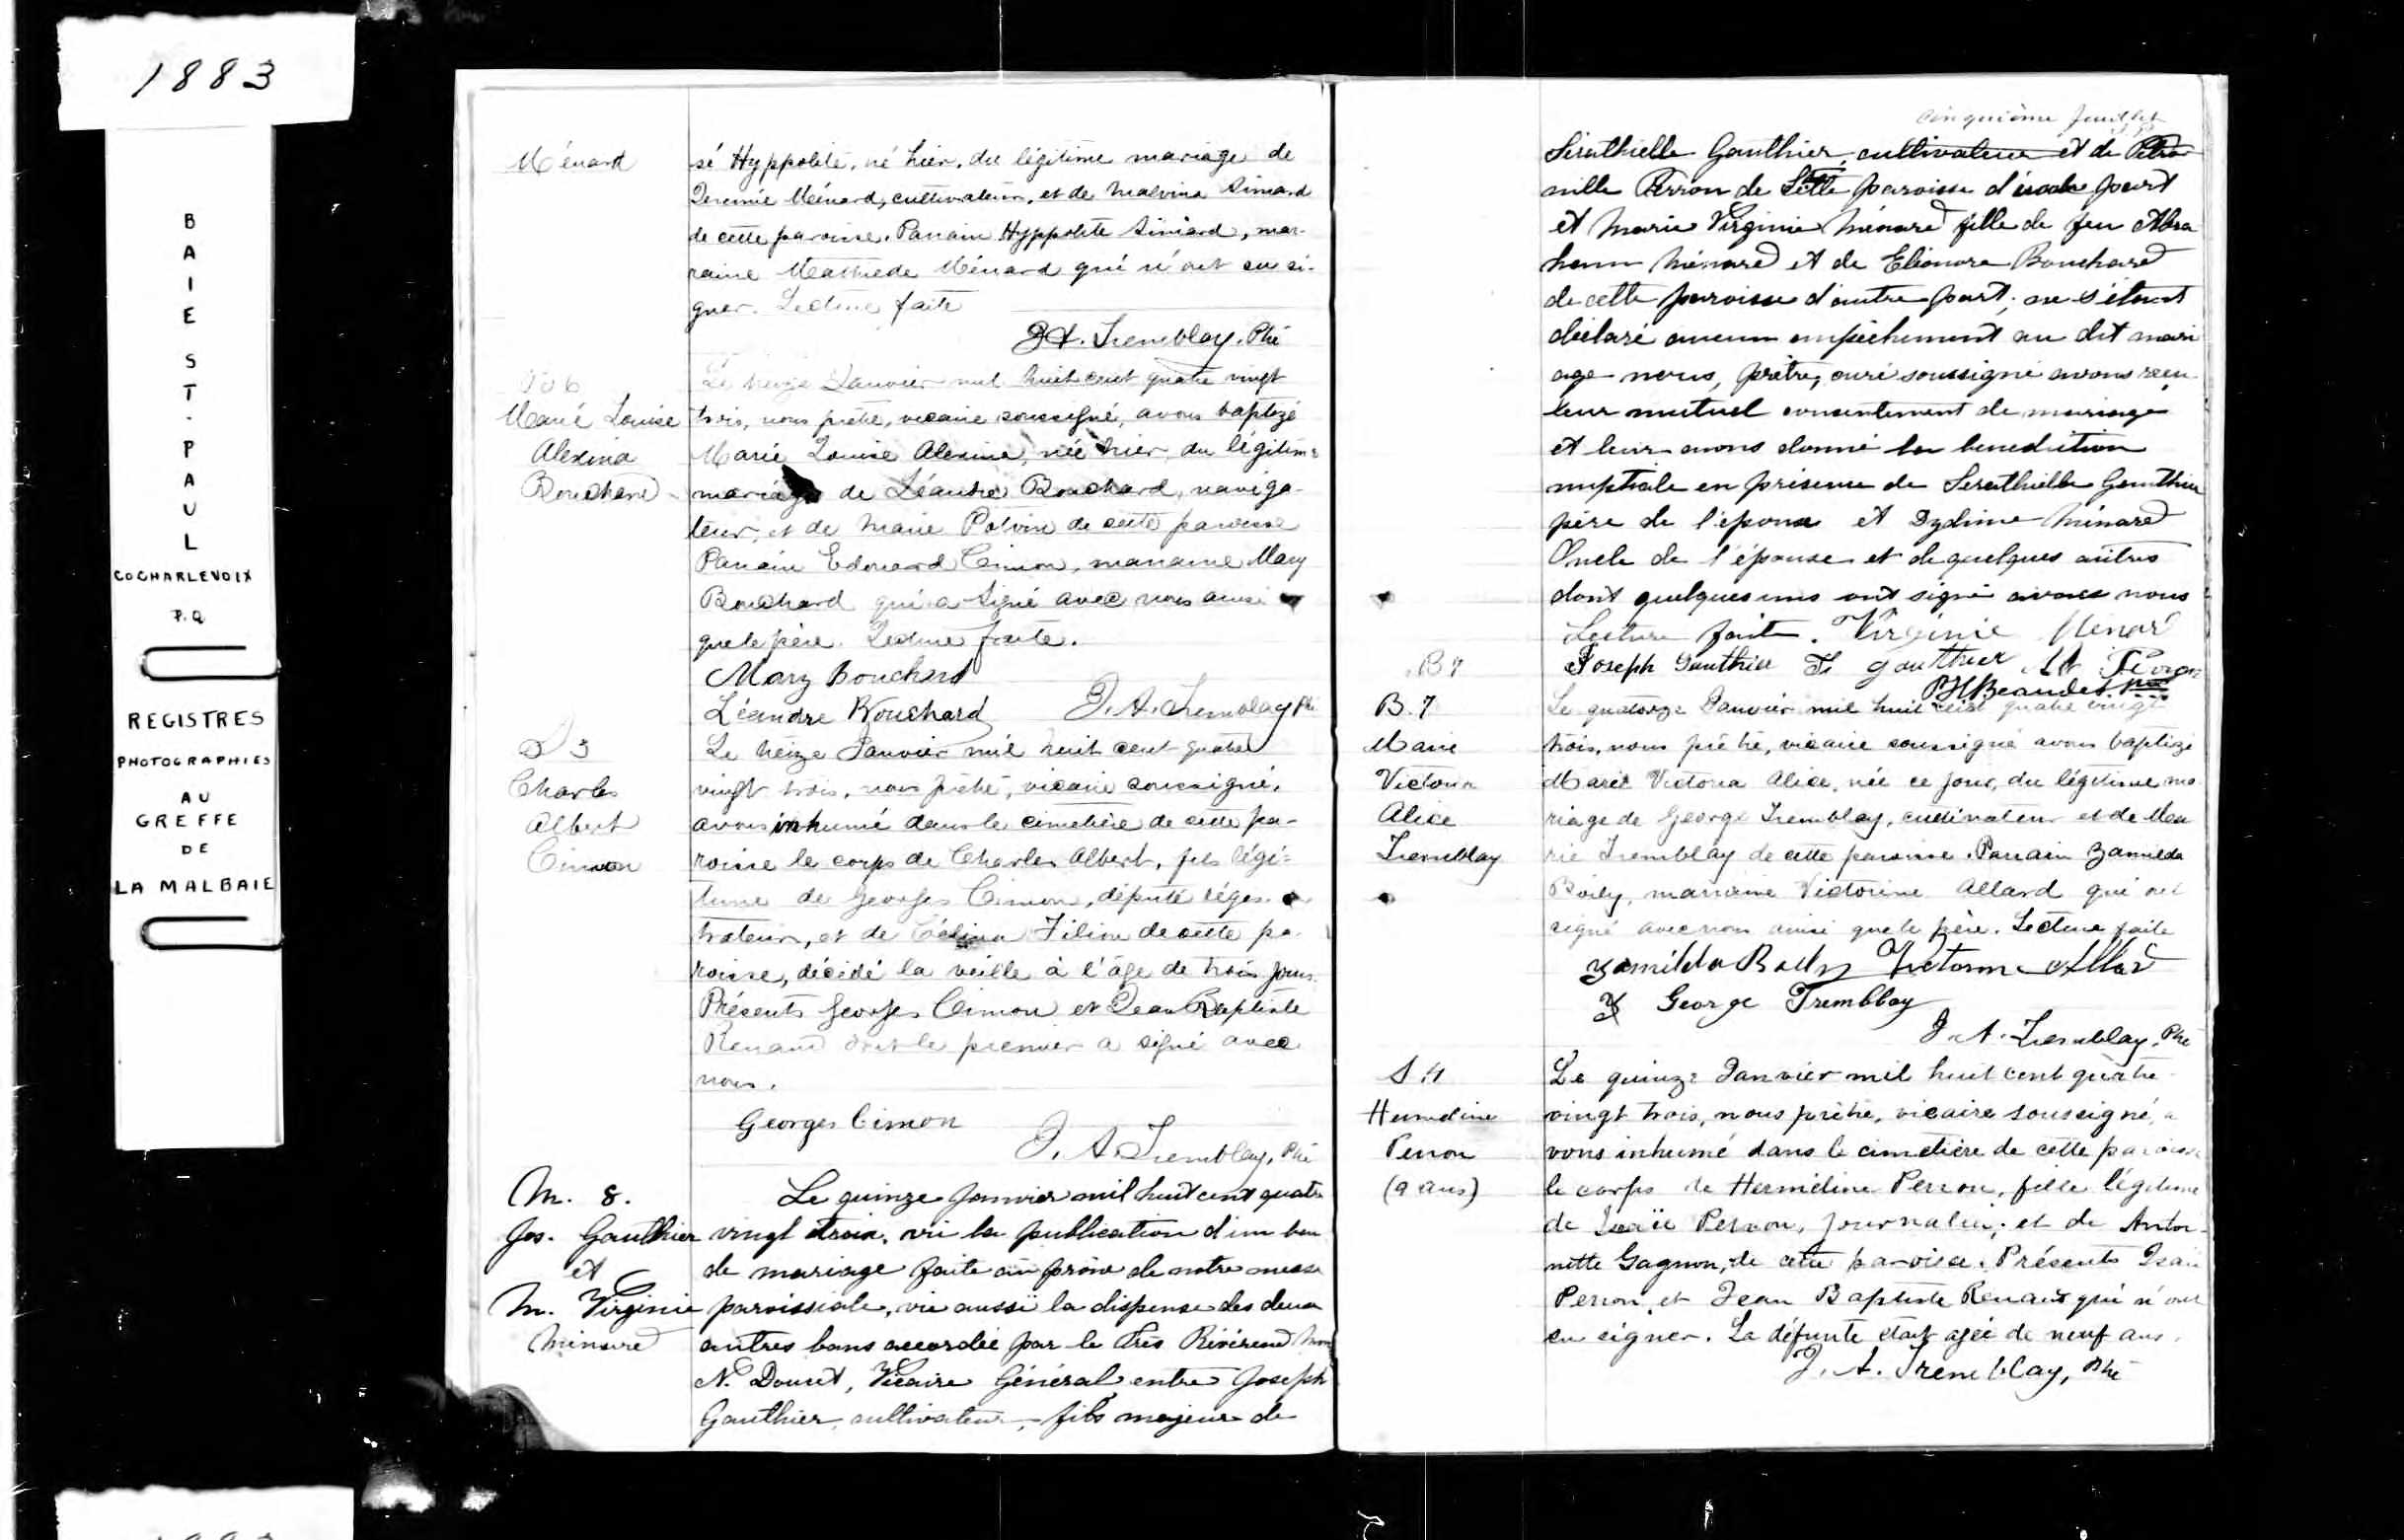 1883
BAIE ST. PAUL
CO CHARLEVOIX
P.Q.
REGISTRES
PHOTOGRAPHIES
AU
GREFFE
DE
LA MALBAIE
Ménard
sé Hyppolite, né hier, du légitime mariage de
Jérémie Ménard, cultivateur, et de Malvina Simard
de cette paroisse. Parrain Hyppolite Simard, mar-
raine Mathilde Ménard qui n'ont su si-
gner. Lecture faite
J.A. Tremblay, Ptre
B 6
Marie Louise
Alexina
Bouchard
Le treize Janvier mil huit cent quatre vingt
trois, nous prêtre, vicaire soussigné, avons baptizé
Marie Louise Alexina, née hier, du légitime
mariage de Léandre Bouchard, naviga-
teur, et de Marie Potvin de cette paroisse
Parrain Edouard Cimon, marraine Mary
Bouchard qui a signé avec nous ainsi
que le père. Lecture faite.
Mary Bouchard
Léandre Bouchard J. A. Tremblay Ptre
S 3
Charles
Albert
Cimon
Le treize Janvier mil huit cent quatre
vingt trois, nous prêtre, vicaire soussigné,
avons inhumé dans le cimetière de cette pa-
roisse le corps de Charles Albert, fils légi-
time de Georges Cimon, député régis-
trateur, et de Célina Filion de cette pa-
roisse, décédé la veille à l'âge de trois jours.
Présents Georges Cimon et Jean Baptiste
Renaud dont le premier a signé avec
nous.
Georges Cimon
J. A. Tremblay, Ptre
M. 8.
Jos. Gauthier
et
M. Virginie
Ménard
Le quinze janvier mil huit cent quatre
vingt trois, vu la publication d'un ban
de mariage faite au prône de notre messe
paroissiale, vu aussi la dispense des deux
autres bans accordée par le Très Révérend
N. Doucet, Vicaire Général entre Joseph
Gauthier, cultivateur, fils majeur de
cinquième feuillet
Gauthier, cultivateur et de Pétro
nille Perron de cette paroisse d'une part
et Marie Virginie Ménard fille de feu Abra
ham Ménard et de Eléonore Bouchard
de cette paroisse d'autre part; ne s'étant
déclaré aucun empêchement au dit mari
age nous, prêtre, curé soussigné avons reçu
leur mutuel consentement de mariage
et leur avons donné la bénédiction
nuptiale en présence de Gauthier
père de l'époux et Dydime Ménard
Oncle de l'épouse et de quelques autres
dont quelques uns ont signé avec nous
Lecture faite. Virginie Menar
Joseph Gauthier gauthier
B 7
B. 7
Marie
Victoria
Alice
Tremblay
Le quatorze Janvier mil huit cent quatre vingt
trois, nous prêtre, vicaire soussigné avons baptizé
Marie Victoria Alice, née ce jour, du légitime ma
riage de George Tremblay, cultivateur et de Ma
rie Tremblay de cette paroisse. Parrain Zamilda
Boily, marraine Victorine Allard qui ont
signé avec nous ainsi que le père. Lecture faite
Zamilda Boily Victorine Allard
X George Tremblay
J. A. Tremblay, Ptre
S. 4
Herméline
Perron
(9 ans)
Le quinze Janvier mil huit cent quatre
vingt trois, nous prêtre, vicaire soussigné, a
vons inhumé dans le cimetière de cette paroisse
le corps de Herméline Perron, fille légitime
de Isaïe Perron, journalier, et de Antoi-
nette Gagnon, de cette paroisse. Présents Isaïe
Perron, et Jean Baptiste Renaud qui n'ont
su signer. La défunte était agée de neuf ans.
J. A. Tremblay, Ptre